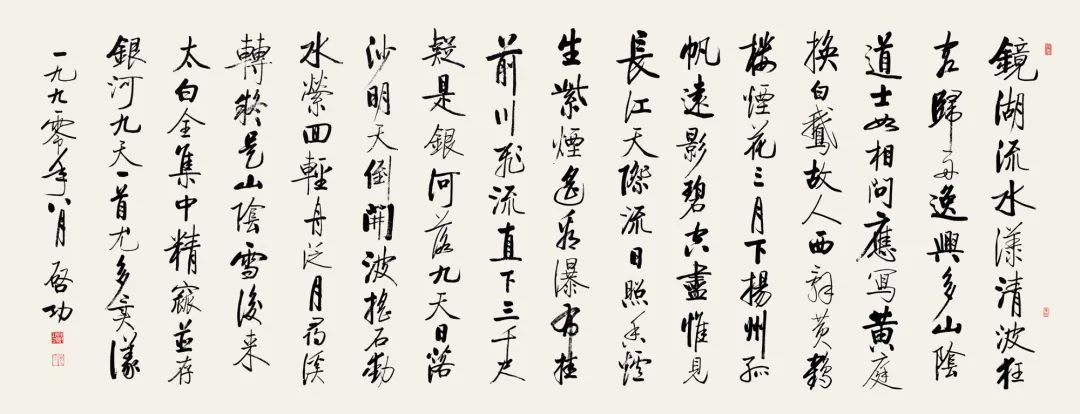 鏡湖流水漾清波狂
客歸舟逸興多山陰
道士如相問應寫黃庭
換白鵝故人西辭黃鶴
樓煙花三月下揚州孤
帆遠影碧空盡惟見
長江天際流日照香爐
生紫煙遙看瀑布挂
前川飛流直下三千尺
疑是銀河落九天日落
沙明天倒開波搖石動
水縈回輕舟泛月尋溪
轉疑是山陰雪後來
太白全集中精窳並存
銀河九天一首尤多
一九九零年八月 啟功